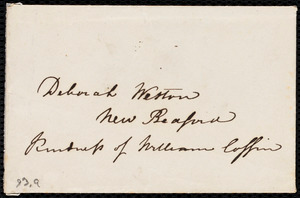 Deborah Weston
New Bedford
Kindness of William Coffin
93,9